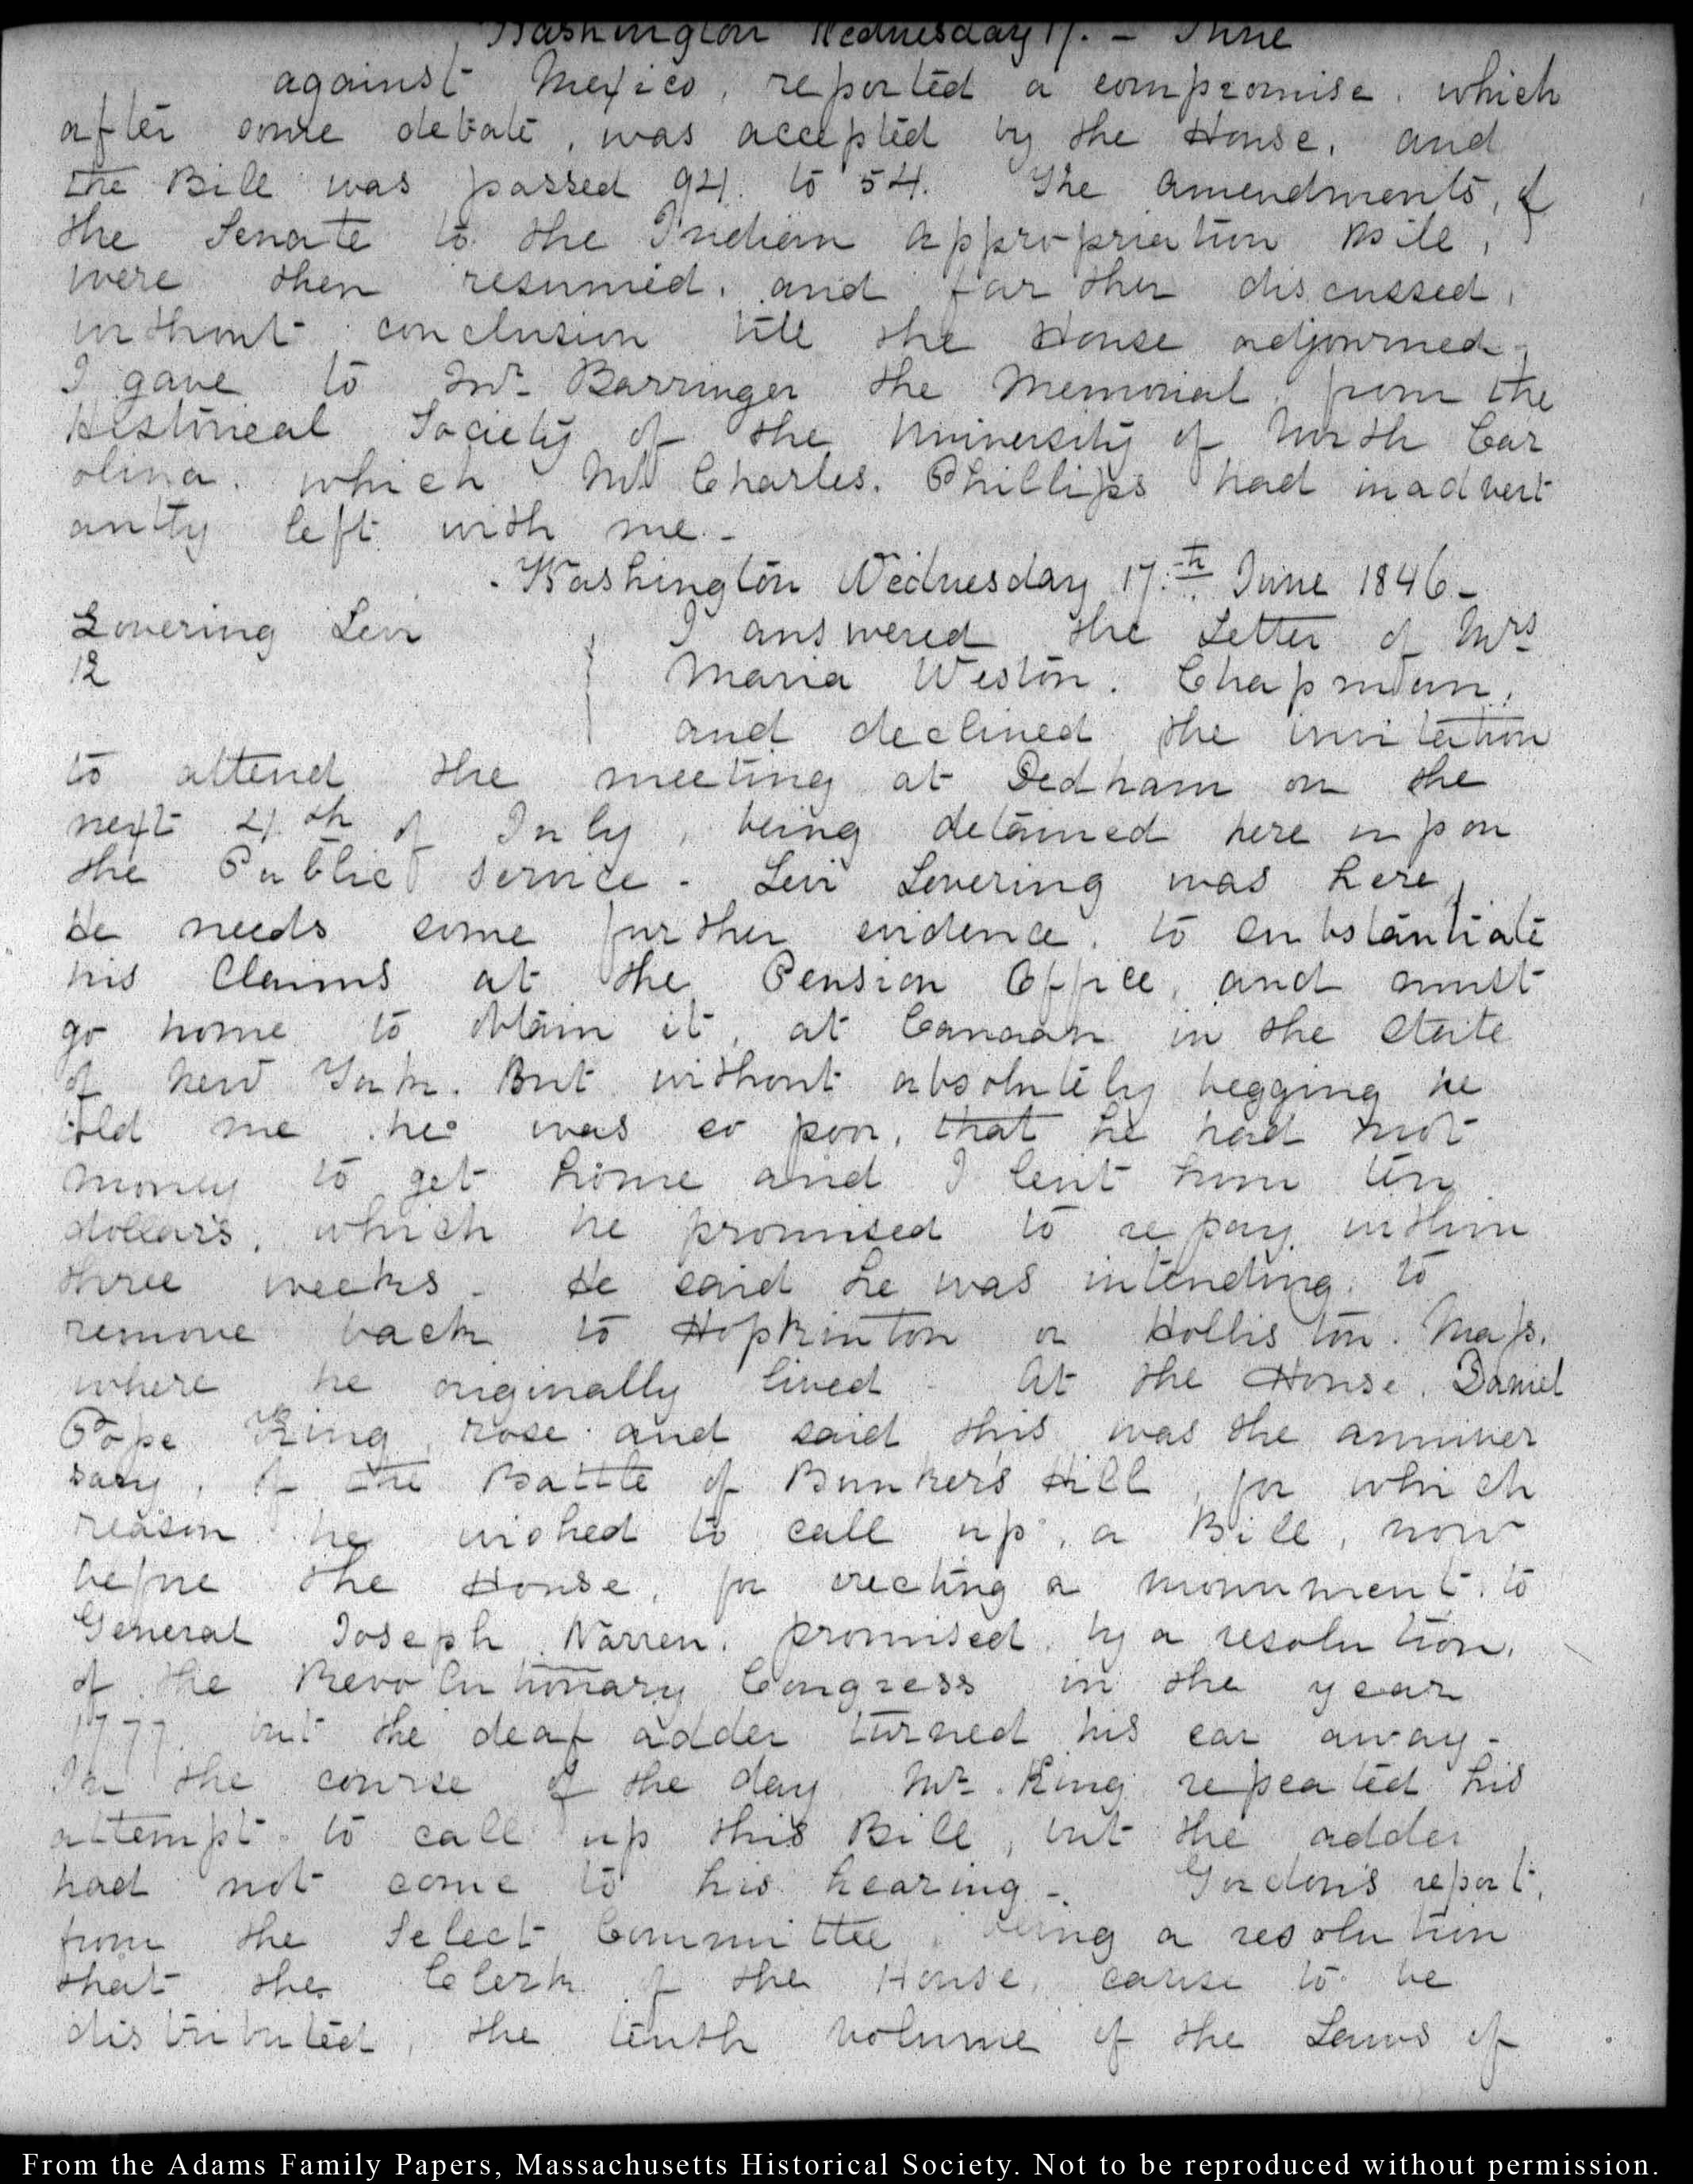 Washington Wednesday 17. - June
against Mexico, reported a compromise. which
after some debate, was accepted by the House, and
the Bill was passed 94. to 54. The amendments, of
the Senate to the Indian appropriation Bill,
were then resumed, and farther discussed,
without conclusion till the House adjourned.
I gave to Mr. Barringer the Memorial from the
Historical Society of the University of North Car
olina. which Mr Charles. Phillips had inadvert
antly left with me -
Washington Wednesday 17.th June 1846 -
Lovering Levi
12
I answered the Letter of Mrs
Maria Weston. Chapman,
and declined the invitation
to attend the meeting at Dedham on the
next 4.th of July, being detained here upon
the Public service - Levi Lovering was here,
He needs some further evidence, to substantiate
his Claims at the Pension Office, and must
go home to obtain it, at Canaan in the State
of New York. But without absolutely begging he
told me he was so poor, that he had not
money to get home and I lent him ten
dollars, which he promised to repay within
three weeks - He said he was intending to
remove back to Hopkinton or Holliston. Mass.
where he originally lived - At the House. Daniel
Pope King rose and said this was the anniver
sary, of the Battle of Bunker's Hill, for which
reason he wished to call up, a Bill, now
before the House, for erecting a monument, to
General Joseph Warren, promised by a resolution,
of the Revolutionary Congress in the year
1777. but the deaf adder turned his ear away -
In the course of the day Mr. King repeated his
attempt to call up this Bill, but the adder
had not come to his hearing - Gordon's report,
from the Select Committee, being a resolution
that the Clerk of the House, cause to be
distributed, the tenth volume of the Laws of
From the Adams Family Papers, Massachusetts Historical Society. Not to be reproduced without permission.